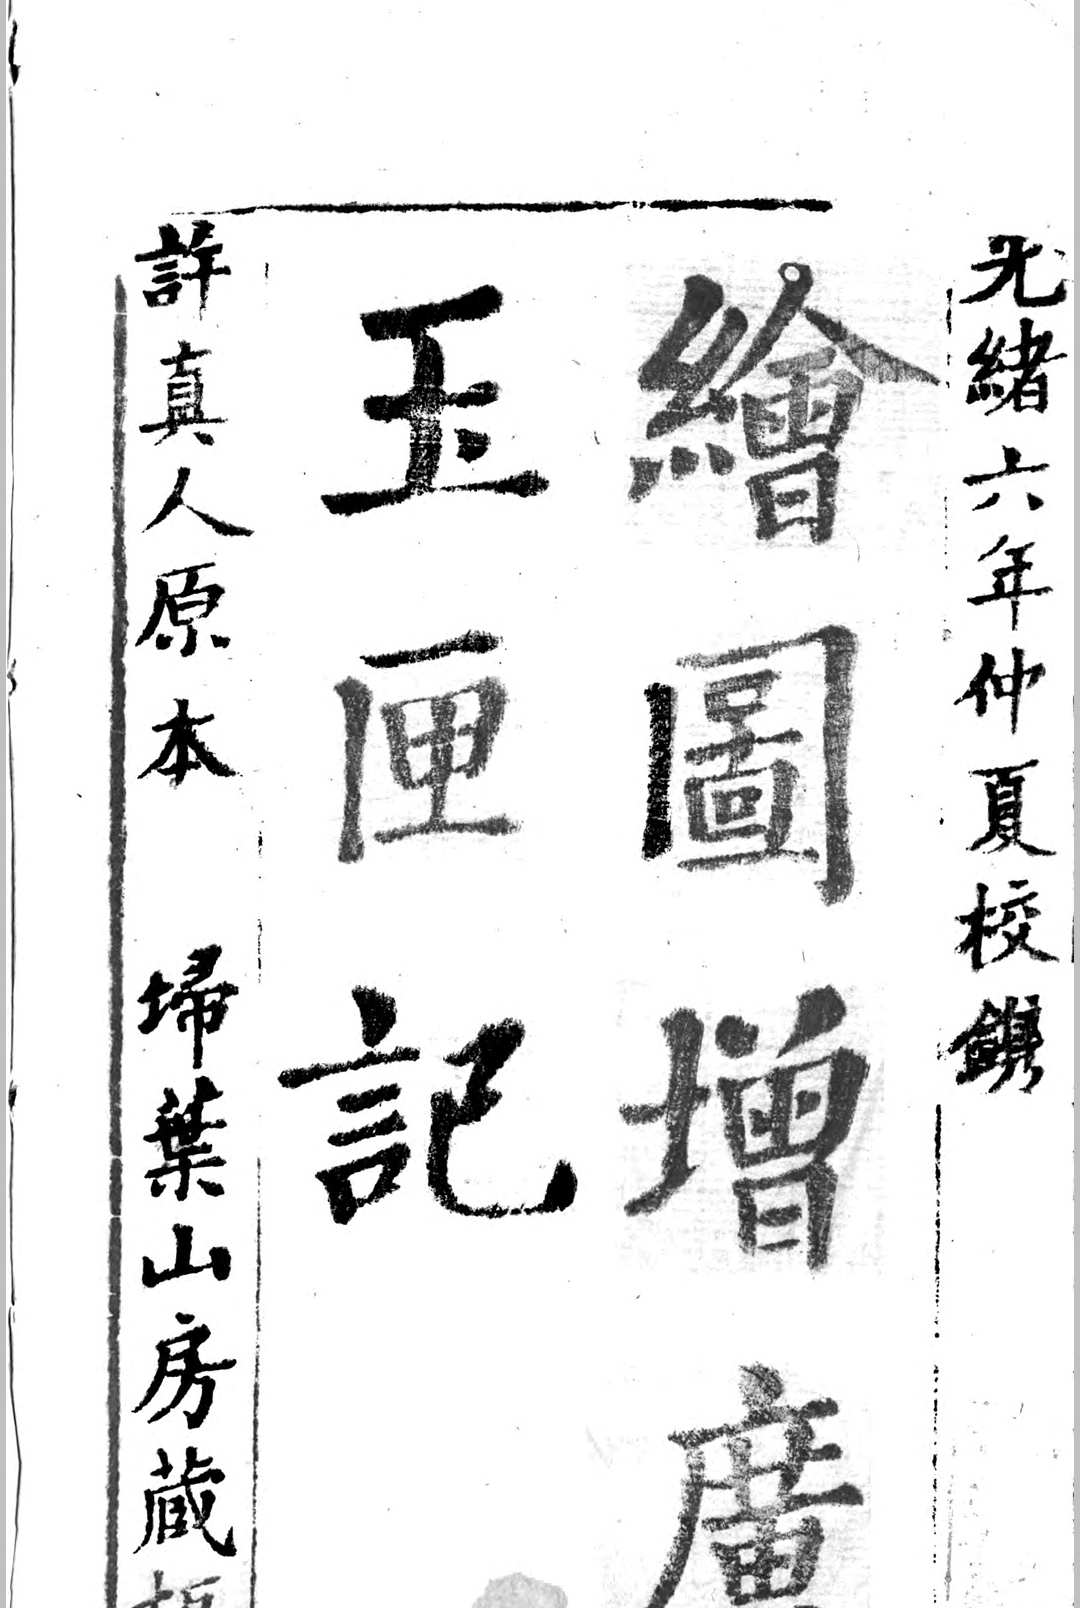 光緒六年仲夏校鐫
繪圖增廣
玉匣記
許真人原本 埽葉山房藏板